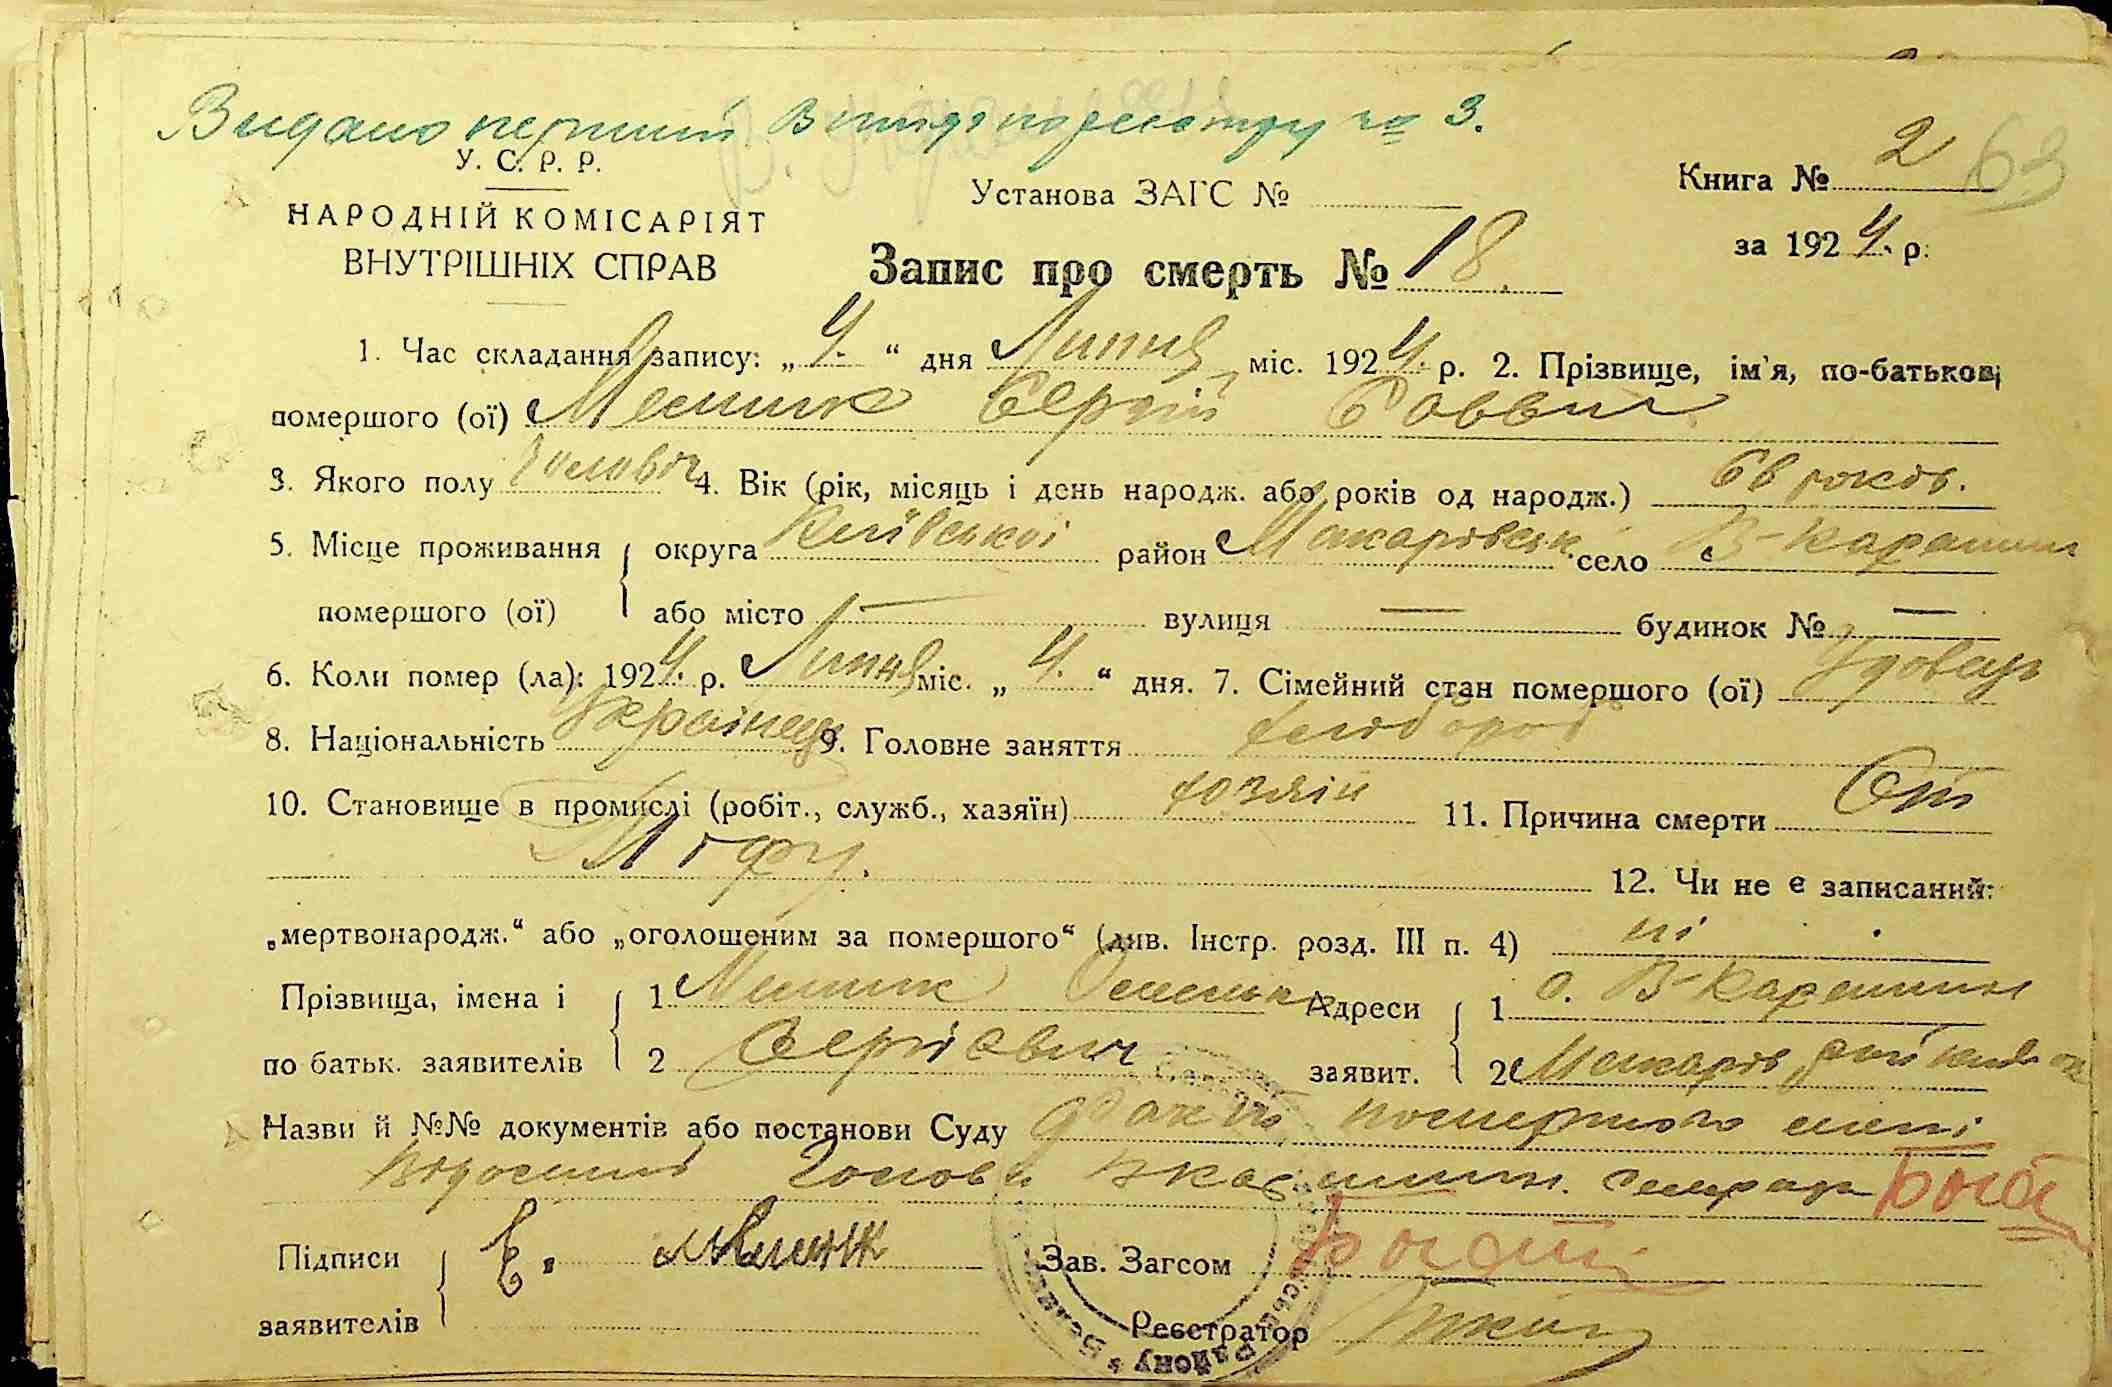 Видано перший Випис по реєстру № 3.
У. С. Р. Р.
НАРОДНІЙ КОМІСАРІЯТ
ВНУТРІШНІХ СПРАВ
Установа ЗАГС №
Книга № 2 63
за 1924 р.
Запис про смерть № 18.
1. Час складання запису: „4.“ дня Липня міс. 1924 р. 2. Прізвище, ім'я, по-батькові
помершого (ої) Мельник Сергій Саввич
3. Якого полу Чоловіч 4. Вік (рік, місяць і день народж. або років од народж.) 68 років.
5. Місце проживання округа Київської район Макарівськ. село В-Карашин
помершого (ої) або місто — вулиця — будинок № —
6. Коли помер (ла): 1924. р. Липня міс. „4.“ дня. 7. Сімейний стан помершого (ої) Удовець
8. Національність Українець 9. Головне заняття хлібороб
10. Становище в промислі (робіт., служб., хазяїн) хозяїн 11. Причина смерти От
Тіфу. 12. Чи не є записаний:
„мертвонародж.“ або „оголошеним за помершого“ (див. Інстр. розд. III п. 4) ні
Прізвища, імена і 1 Мельник Адреси 1 с. В-Карашин
по батьк. заявителів 2 Сергієвич заявит. 2 Макарів
Назви й №№ документів або постанови Суду помершого мені
відомий Голова сельради
Підписи Е. Мельник Зав. Загсом
заявителів Реєстратор